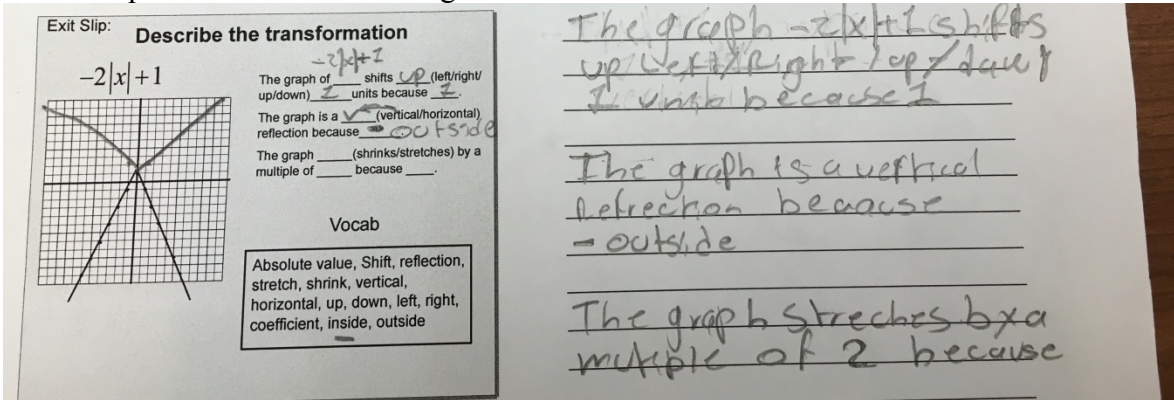 Exit Slip:
Describe the transformation
-2|x|+1
-2|x|+1
The graph of ____ shifts up (left/right/
up/down) 1 units because 1.
The graph is a V (vertical/horizontal)
reflection because - outside
The graph _____(shrinks/stretches) by a
multiple of _____ because ____.
Vocab
Absolute value, Shift, reflection,
stretch, shrink, vertical,
horizontal, up, down, left, right,
coefficient, inside, outside
The graph -2|x|+1 shifts
up Left/Right/up/down
1 unit because 1
The graph is a vertical
Refrection because
- outside
The graph streches by a
mutiple of 2 because